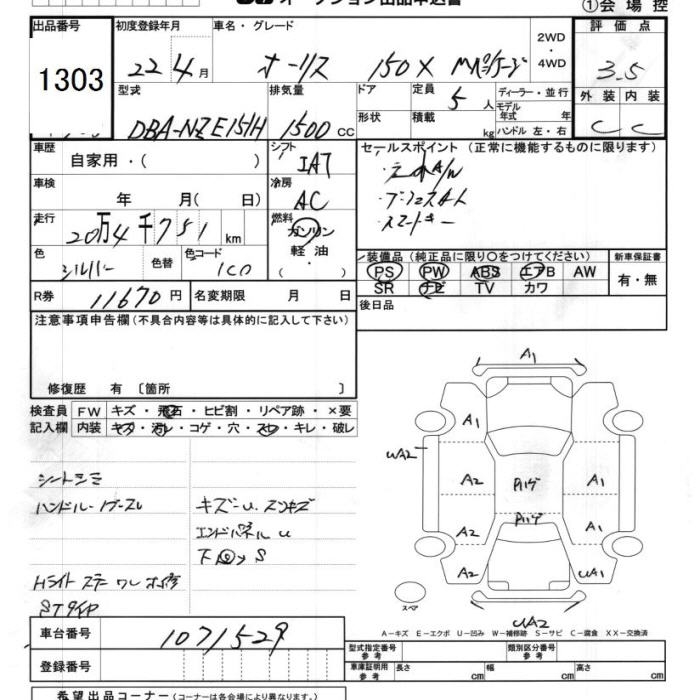 オークション出品申込書
①会場控
出品番号 初度登録年月 車名・グレード 2WD・4WD 評価点
1303 22 4月 オーリス 150X Mパッケージ 3.5
型式 排気量 ドア 定員 5人 ディーラー・並行 外装 内装
DBA-NZE151H 1500cc 形状 積載 kg モデル年式 年 ハンドル左・右 C C
車歴 自家用・( ) シフト IAT セールスポイント(正常に機能するものに限ります)
車検 年 月( 日) 冷房 AC
・プッシュスタート
・スマートキー
走行 20万4千751km 燃料 ガソリン 軽油 ・( )
色 シルバー 色替 色コード 1C0
装備品(純正品に限り○をつけてください) 新車保証書
PS PW ABS エアB AW 有・無
SR ナビ TV カワ
R券 11670円 名変期限 月 日 後日品
注意事項申告欄(不具合内容等は具体的に記入して下さい)
修復歴 有〔箇所 〕
検査員記入欄 FW キズ・飛石・ヒビ割・リペア跡・×要
内装 キズ・汚れ・コゲ・穴・スレ・キレ・破レ
シートシミ
キズ-U
エンドパネルU
A1
A1
UA2
A2 Pハゲ A1
A2 Pハゲ A1
A2 UA1
スペア
UA2
A-キズ E-エクボ U-凹み W-補修跡 S-サビ C-腐食 XX-交換済
車台番号 1071529
型式指定番号 参考 類別区分番号 参考
登録番号
車庫証明用 参考 長さ cm 幅 cm 高さ cm
希望出品コーナー(コーナーは各会場により異なります。)